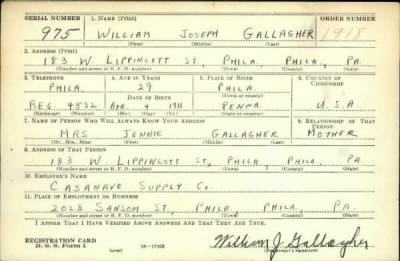 SERIAL NUMBER 1. NAME (Print) ORDER NUMBER
975 WILLIAM JOSEPH GALLAGHER 1918
(First) (Middle) (Last)
2. ADDRESS (Print)
183 W. LIPPINCOTT ST, PHILA, PHILA, PA.
(Number and street or R. F. D. number) (Town) (County) (State)
3. TELEPHONE 4. AGE IN YEARS 5. PLACE OF BIRTH 6. COUNTRY OF CITIZENSHIP
PHILA 29 PHILA
DATE OF BIRTH (Town or county)
REG. 4832 APR. 4 1911 PENNA. U.S.A
(Exchange) (Number) (Mo.) (Day) (Yr.) (State or country)
7. NAME OF PERSON WHO WILL ALWAYS KNOW YOUR ADDRESS 8. RELATIONSHIP OF THAT PERSON
MRS JENNIE GALLAGHER MOTHER
(Mr., Mrs., Miss) (First) (Middle) (Last)
9. ADDRESS OF THAT PERSON
183 W LIPPINCOTT ST, PHILA, PHILA, PA.
(Number and street or R. F. D. number) (Town) (County) (State)
10. EMPLOYER'S NAME
CASANAVE SUPPLY CO.
11. PLACE OF EMPLOYMENT OR BUSINESS
2028 SANSOM ST, PHILA, PHILA, PA.
(Number and street or R. F. D. number) (Town) (County) (State)
I AFFIRM THAT I HAVE VERIFIED ABOVE ANSWERS AND THAT THEY ARE TRUE.
REGISTRATION CARD
D. S. S. Form 1 (over) William J. Gallagher